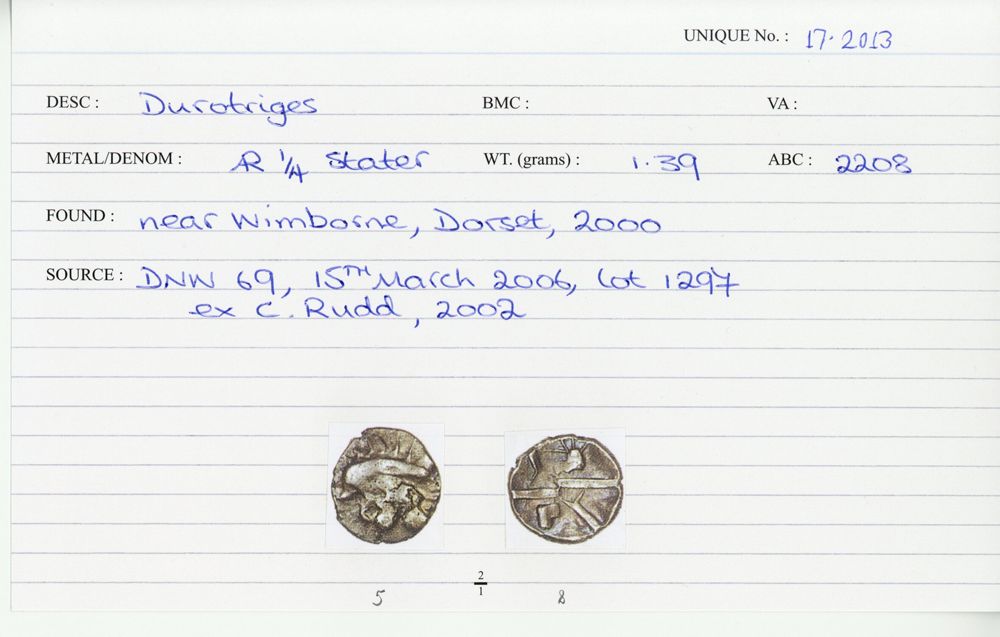 UNIQUE No. : 17.2013
DESC : Durotriges BMC : VA :
METAL/DENOM : AR 1/4 Stater WT. (grams) : 1.39 ABC : 2208
FOUND : near Wimborne, Dorset, 2000
SOURCE : DNW 69, 15TH March 2006, lot 1297
ex C. Rudd, 2002
2
1
5 8